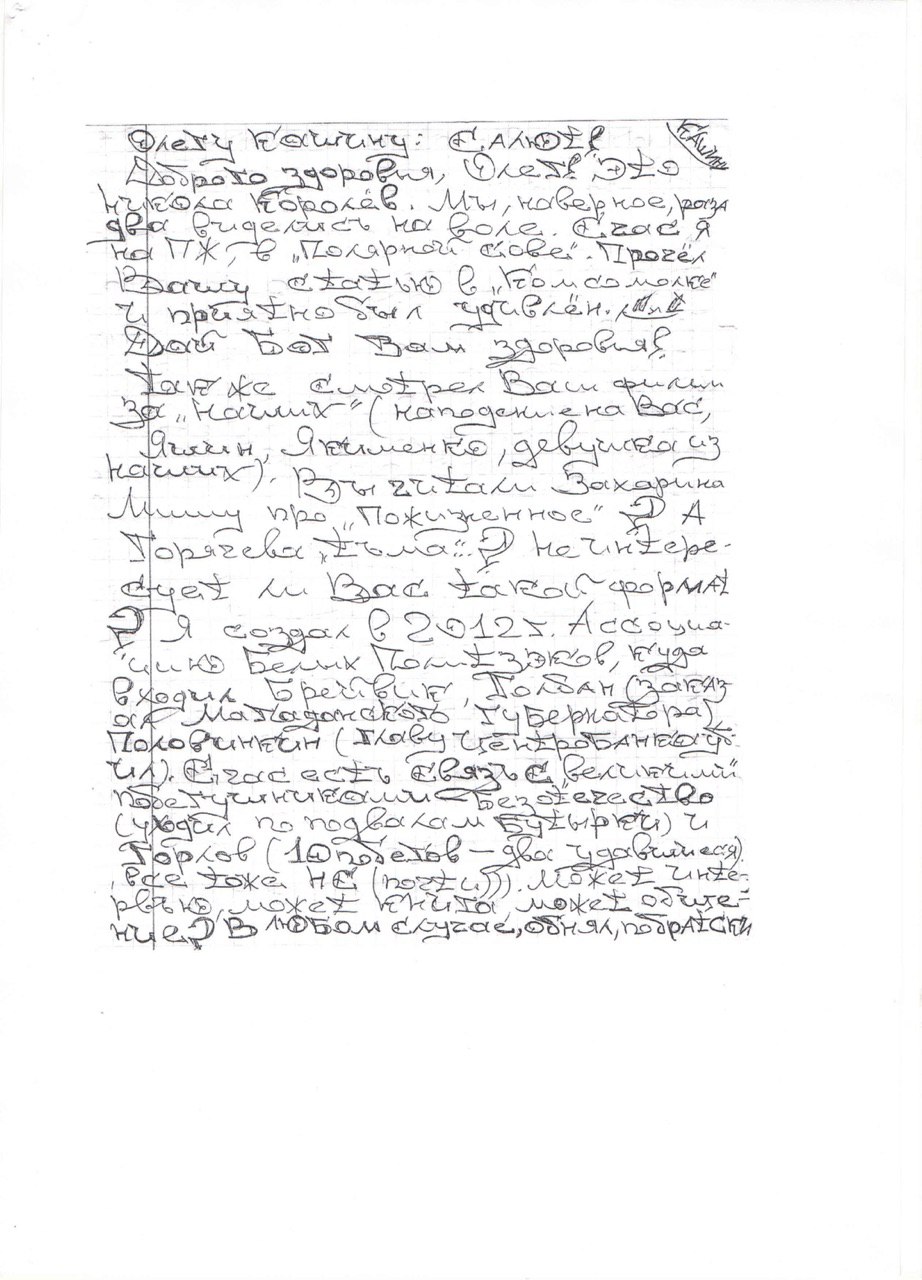 Олегу Кашину: САЛЮТ!
КАШИН
Доброго здоровия, Олег! Это
Никола Королёв. Мы, наверное, раза
два виделись на воле. Счас я
на ПЖ, в „Полярной сове". Прочёл
Вашу статью в „Комсомолке"
и приятно был удивлён.
Дай Бог Вам здоровия!
Так же смотрел Ваш фильм
за „Наших" (нападение на Вас,
Яшин, Якименко, девушка из
наших). Вы читали Захарина
Мишу про „Пожизненное"? А
Горячева „Тьма"? Не интере-
сует ли Вас такой формат
? Я создал в 2012г. Ассоциа-
цию Белых Политзэков, куда
входил Брейвик, Голдан (заказ-
ал Магаданского губернатора),
Половинкин (главу Центробанка уб-
ил). Счас есть связь с „великими"
побегушниками – Безотечество
(уходил по подвалам Бутырки) и
Горлов (10 побегов – два удавшиеся)
все тоже НС (почти))). Может инте-
рвью, может книга, может обще-
ние? В любом случае, обнял, по братски